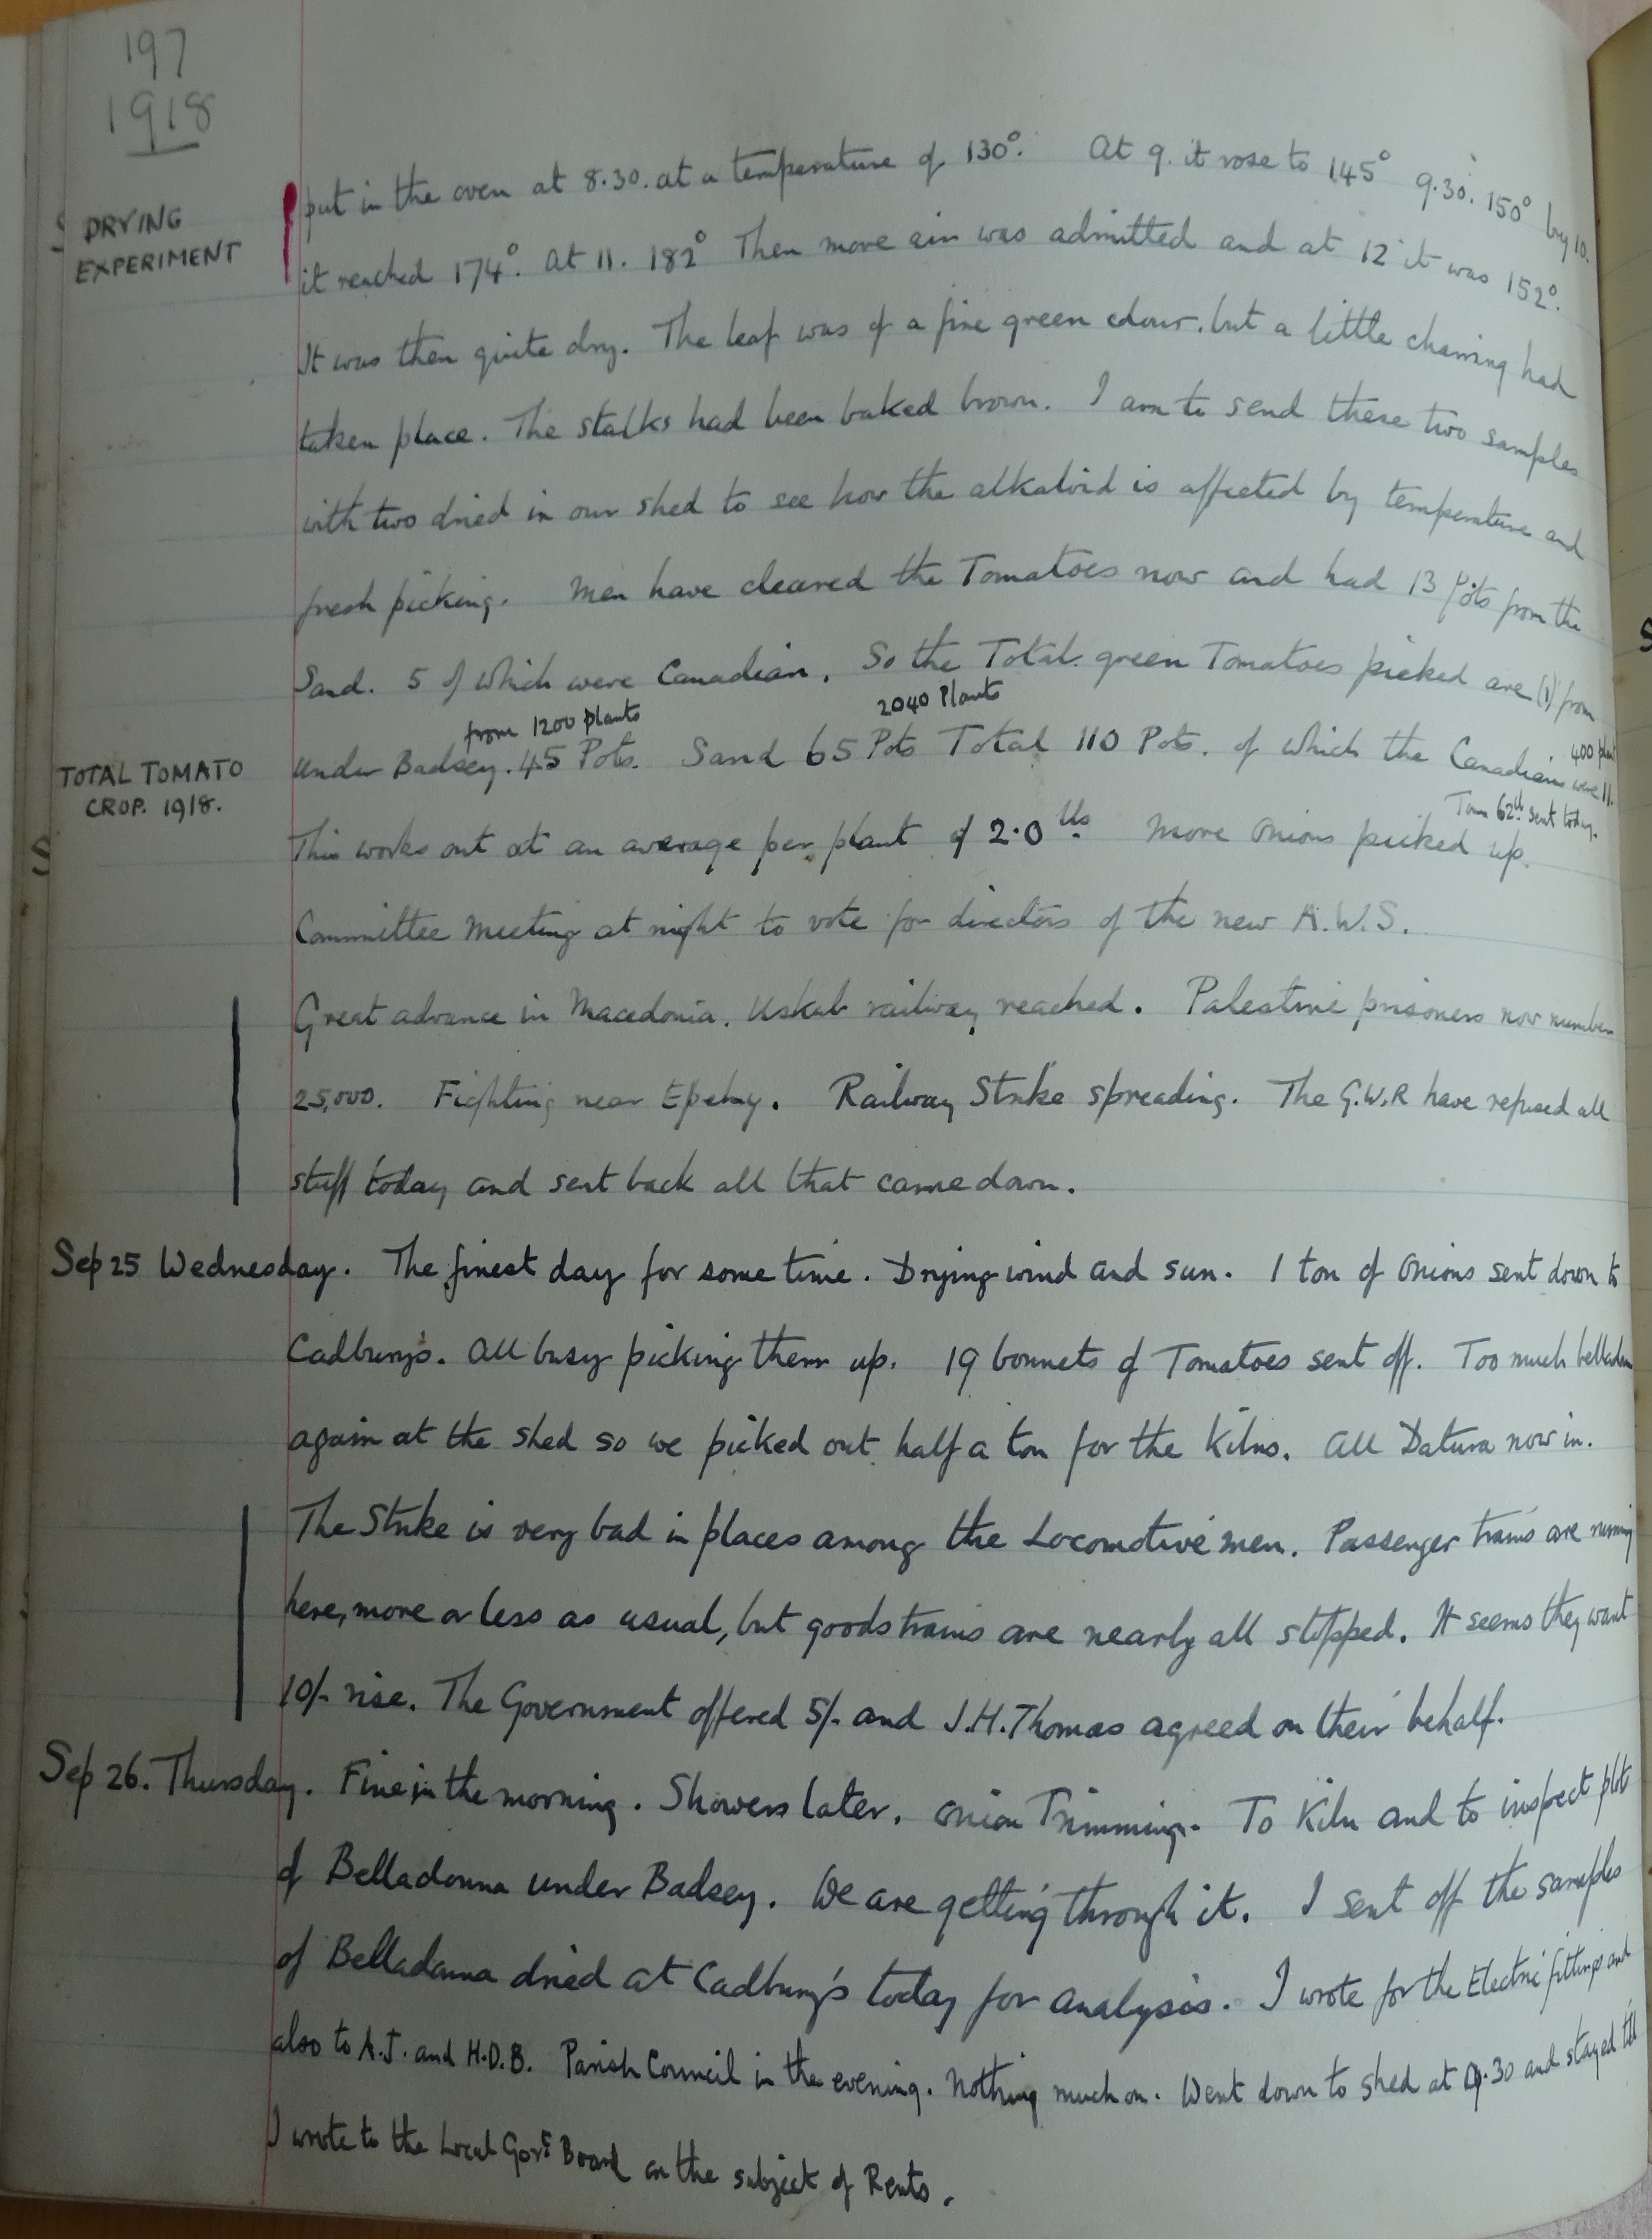 197
1918
DRYING
EXPERIMENT
put in the oven at 8.30. at a temperature of 130°. At 9. it rose to 145° 9.30. 150° by 10.
it reached 174°. At 11. 182° Then more air was admitted and at 12 it was 152°.
It was then quite dry. The leaf was of a fine green colour. but a little charring had
taken place. The stalks had been baked brown. I am to send these two samples
with two dried in our shed to see how the alkaloid is affected by temperature and
fresh picking. Men have cleared the Tomatoes now and had 13 Pots from the
Sand. 5 of which were Canadian. So the Total green Tomatoes picked are (1) from
from 1200 plants 2040 Plants
TOTAL TOMATO
CROP. 1918.
under Badsey. 45 Pots. Sand 65 Pots Total 110 Pots. of which the Canadians were 11.
400 plants
Tom 62nd sent today.
This works out at an average per plant of 2.0 lbs More Onions picked up.
Committee Meeting at night to vote for directors of the new A.W.S.
Great advance in Macedonia. Uskub railway reached. Palestine prisoners now number
25,000. Fighting near Epehy. Railway Strike spreading. The G.W.R have refused all
stuff today and sent back all that came down.
Sep 25 Wednesday. The finest day for some time. Drying wind and sun. 1 ton of Onions sent down to
Cadbury's. All busy picking them up. 19 bonnets of Tomatoes sent off. Too much belladonna
again at the shed so we picked out half a ton for the Kilns. All Datura now in.
The Strike is very bad in places among the Locomotive men. Passenger trains are running
here, more or less as usual, but goods trains are nearly all stopped. It seems they want
10/- rise. The Government offered 5/- and J.H. Thomas agreed on their behalf.
Sep 26. Thursday. Fine in the morning. Showers later. Onion Trimming. To Kiln and to inspect plot
of Belladonna under Badsey. We are getting through it. I sent off the samples
of Belladonna dried at Cadbury's today for analysis. I wrote for the Electric fittings and
also to A.J. and H.D.B. Parish Council in the evening. Nothing much on. Went down to shed at 9.30 and stayed till
I wrote to the Local Govt Board on the subject of Rents.